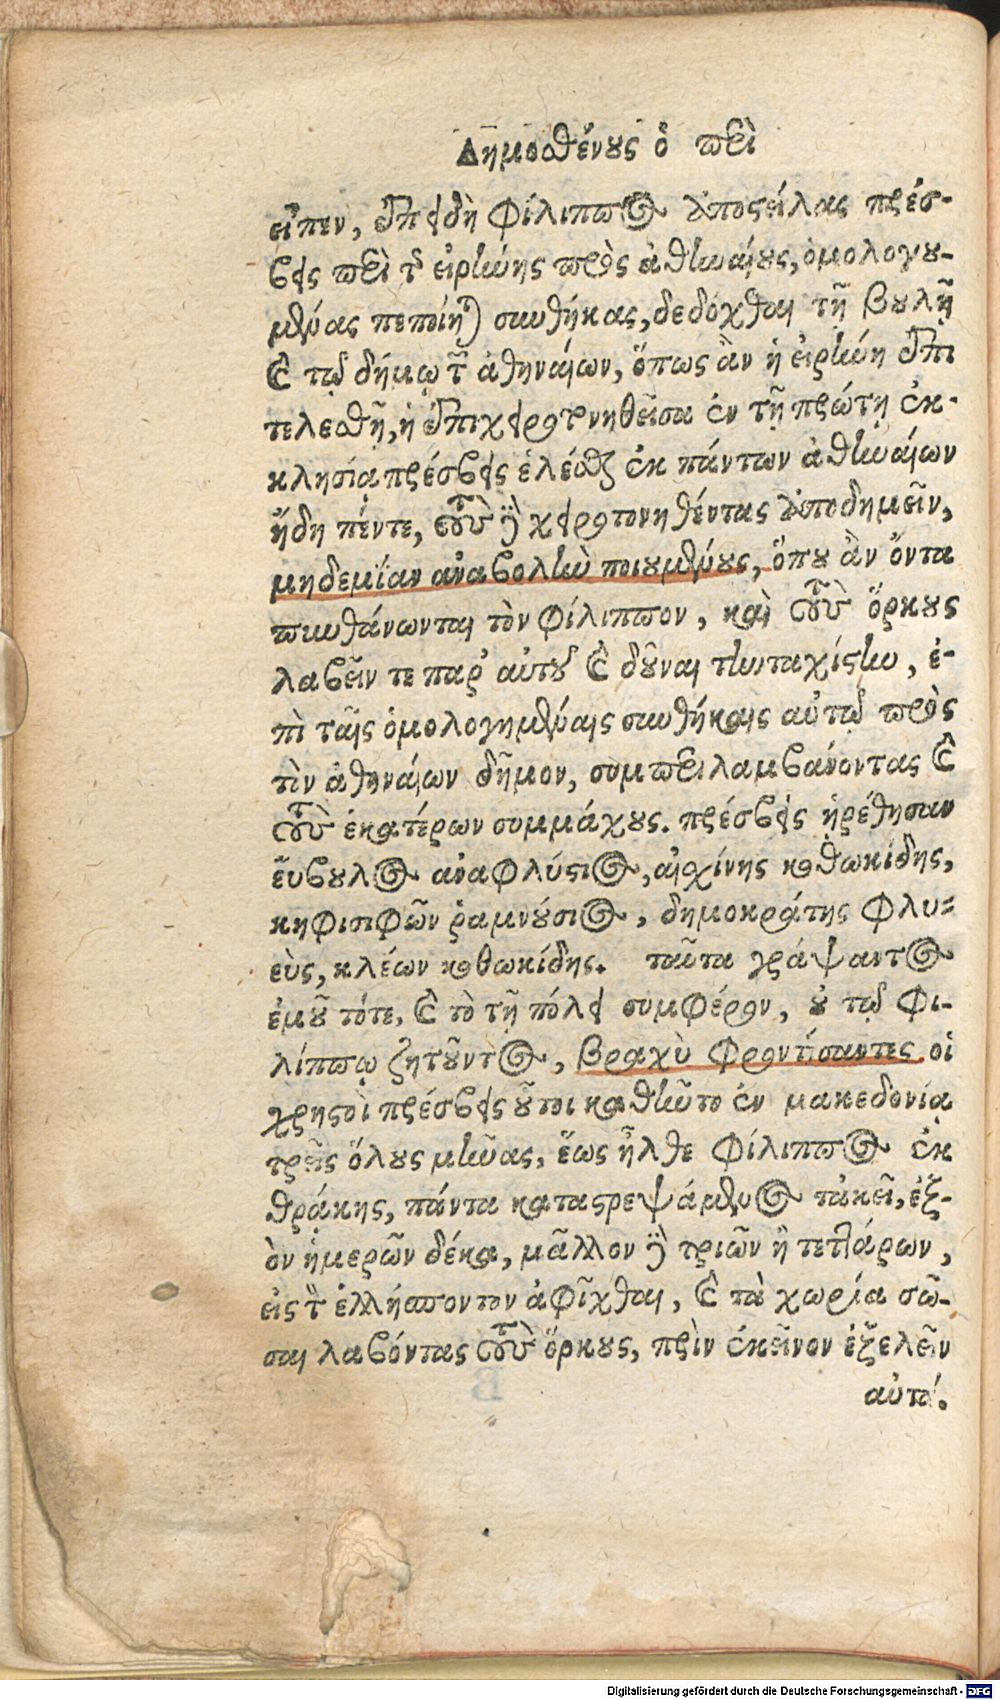 Δημοσθένους ὁ περὶ
εἶπεν, ἐπειδὴ Φίλιππος ἀποστείλας πρέσ-
βεις περὶ τῆς εἰρήνης πρὸς ἀθηναίους, ὁμολογου-
μένας πεποίηται συνθήκας, δεδόχθαι τῇ βουλῇ
καὶ τῷ δήμῳ τῶν ἀθηναίων, ὅπως ἂν ἡ εἰρήνη ἐπι
τελεσθῇ, ἡ ἐπιχειροτονηθεῖσα ἐν τῇ πρώτῃ ἐκ-
κλησίᾳ πρέσβεις ἑλέσθαι ἐκ πάντων ἀθηναίων
ἤδη πέντε, τοὺς δὲ χειροτονηθέντας ἀποδημεῖν,
μηδεμίαν ἀναβολὴν ποιουμένους, ὅπου ἂν ὄντα
πυνθάνωνται τὸν φίλιππον, καὶ τοὺς ὅρκους
λαβεῖν τε παρ' αὐτοῦ καὶ δοῦναι τὴν ταχίστην, ἐ-
πὶ ταῖς ὁμολογημέναις συνθήκαις αὐτῷ πρὸς
τὸν ἀθηναίων δῆμον, συμπεριλαμβάνοντας καὶ
τοὺς ἑκατέρων συμμάχους. πρέσβεις ἡρέθησαν
εὔβουλος ἀναφλύστιος, αἰσχίνης κοθωκίδης,
κηφισιφῶν ῥαμνούσιος, δημοκράτης Φλυ-
εὺς, κλέων κοθωκίδης. ταῦτα γράψαντος
ἐμοῦ τότε, καὶ τὸ τῇ πόλει συμφέρον, οὐ τῷ Φι-
λίππῳ ζητοῦντος, βραχὺ φροντίσαντες οἱ
χρηστοὶ πρέσβεις οὗτοι καθῆντο ἐν μακεδονίᾳ
τρεῖς ὅλους μῆνας, ἕως ἦλθε Φίλιππος ἐκ
θρᾴκης, πάντα καταστρεψάμενος τἀκεῖ, ἐξ-
ὸν ἡμερῶν δέκα, μᾶλλον δὲ τριῶν ἢ τεττάρων,
εἰς τὸν ἑλλήσποντον ἀφῖχθαι, καὶ τὰ χωρία σῶ-
σαι λαβόντας τοὺς ὅρκους, πρὶν ἐκεῖνον ἐξελεῖν
αὐτά.
Digitalisierung gefördert durch die Deutsche Forschungsgemeinschaft - DFG